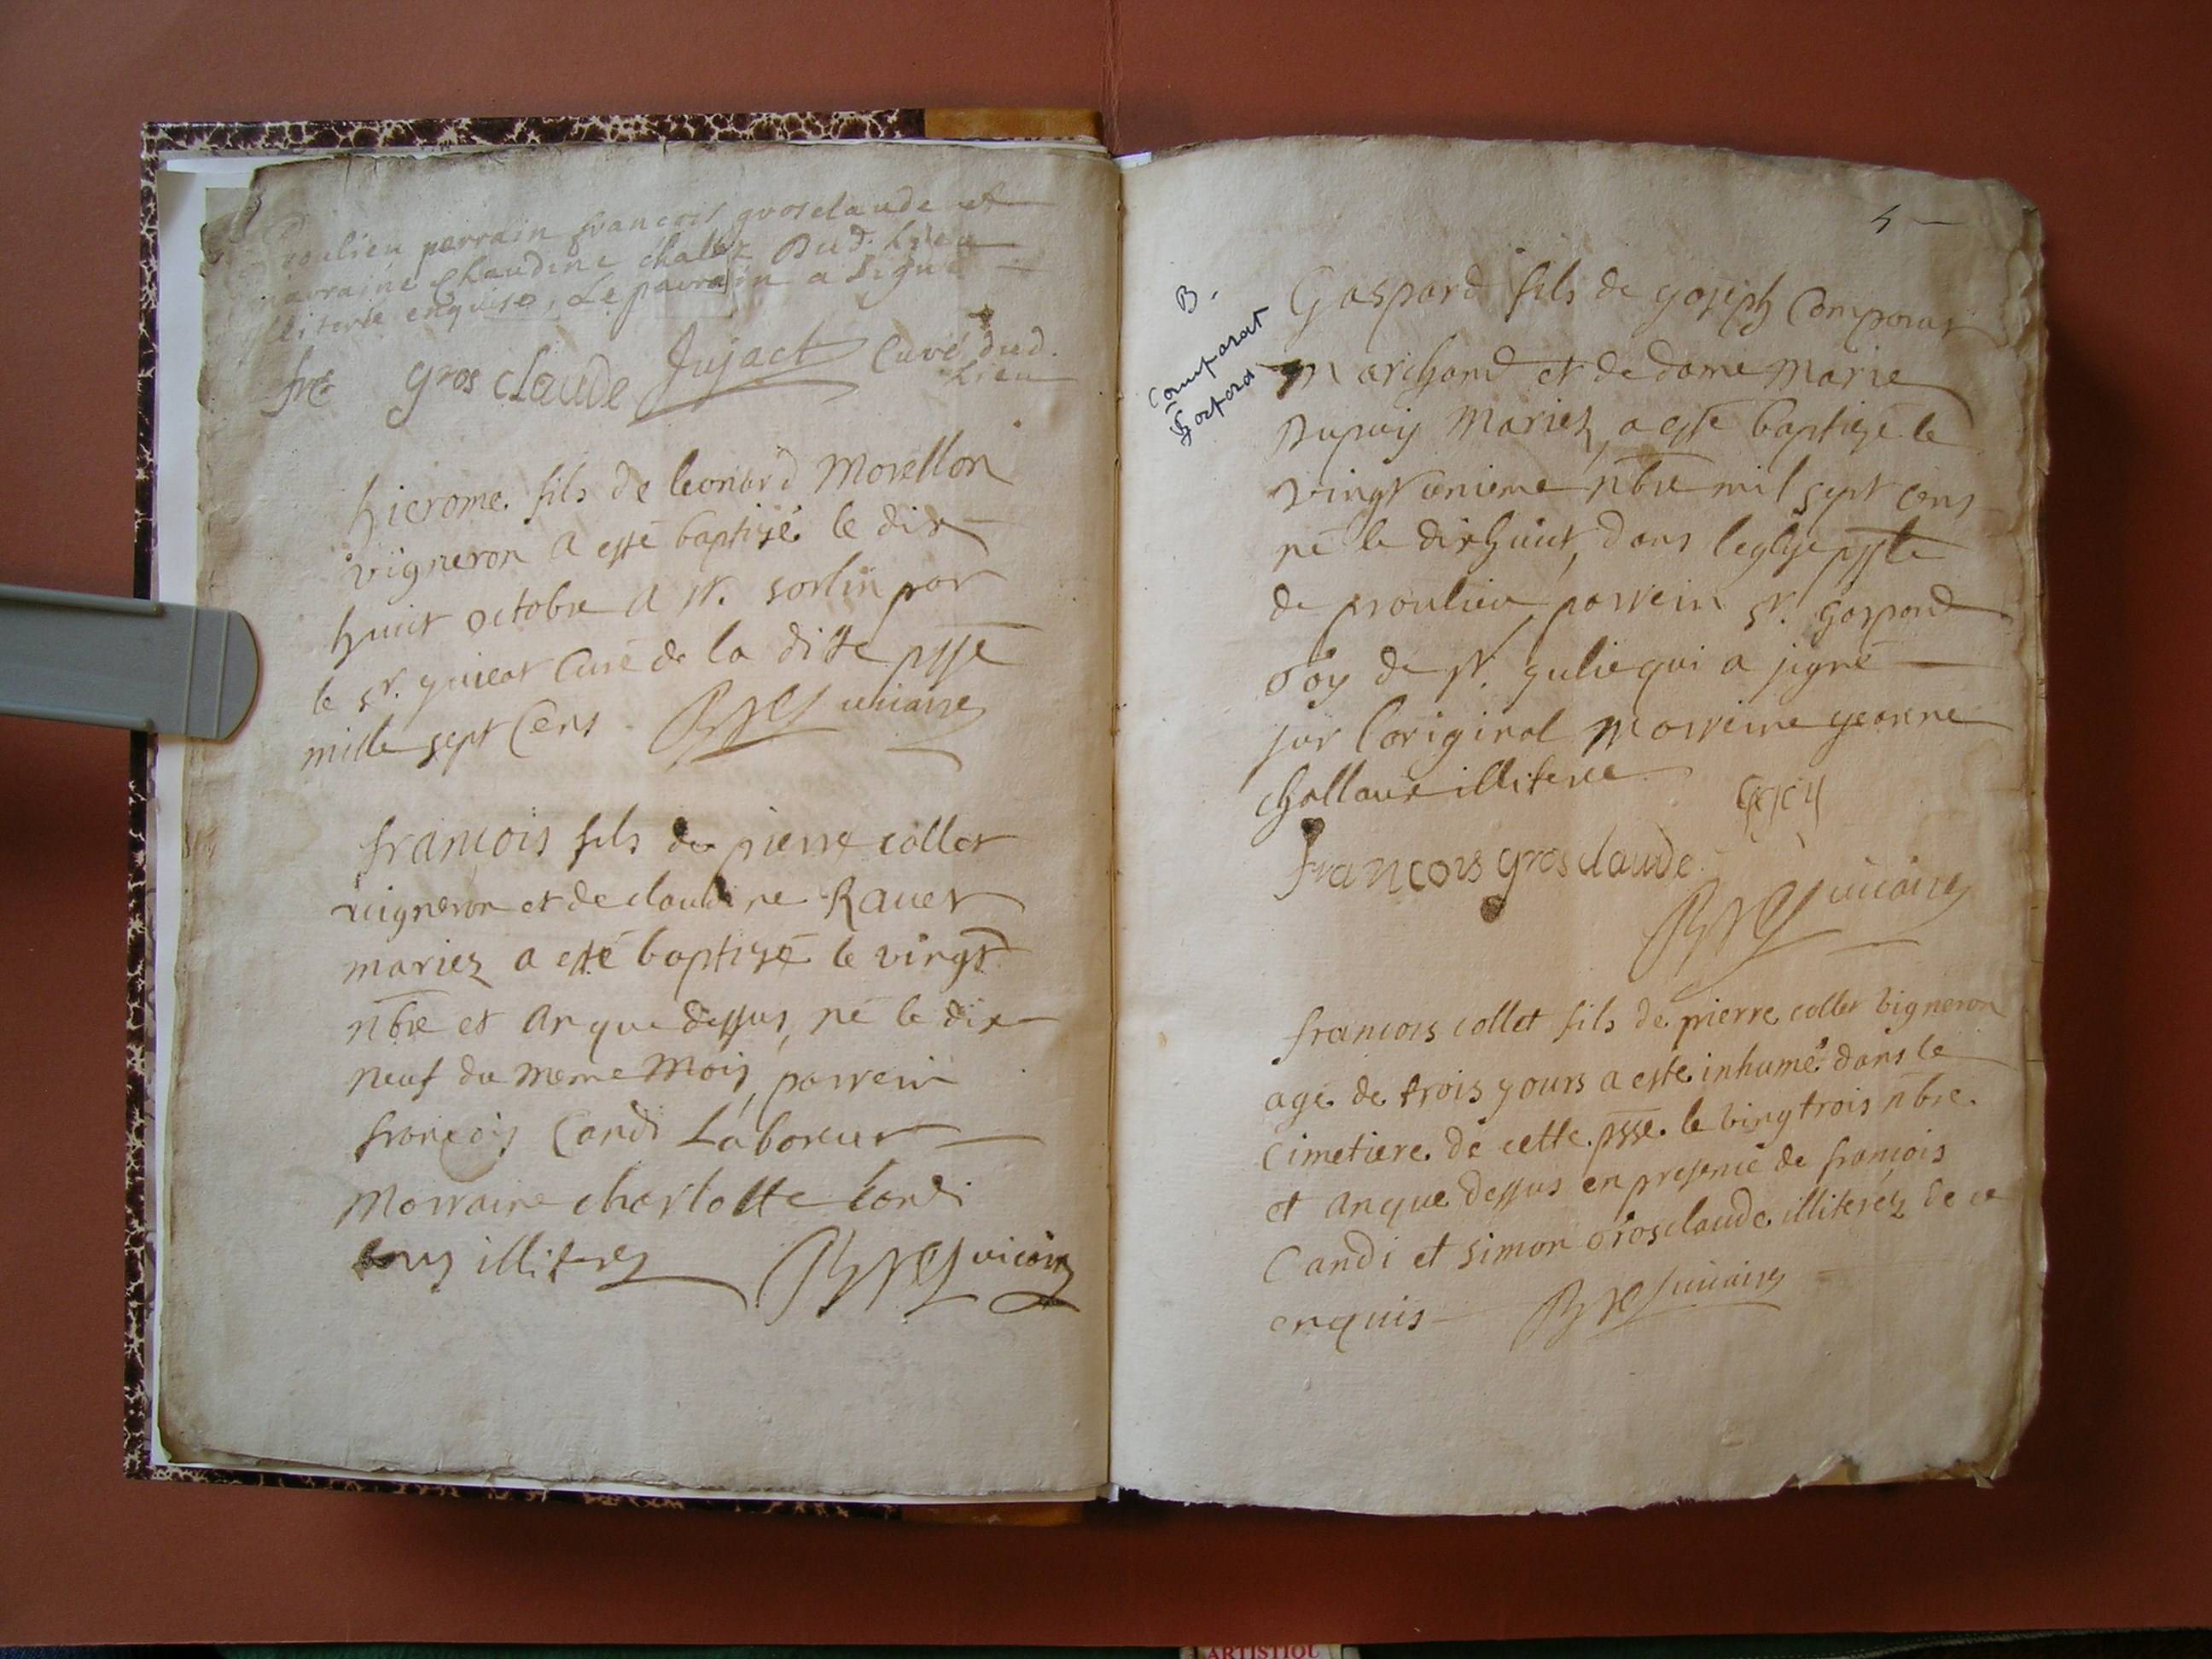 proulien parrain francois grosclaude et
marraine Claudine chalet Dud. Lieu
illiterée enquise, Le parrain a signé
frc gros claude Jujact Curé dud.
Lieu
hierome fils de leonard Morellon
vigneron a esté baptisé le dix
huict octobre a st. sorlin par
le sr. curé de la ditte psse
mille sept Cens vicaire
francois fils de pierre collet
vigneron et de claudine Ravet
mariez a esté baptizé le vingt
nbre et an que dessus, né le dix
neuf du meme mois, parrein
francois Candi Laboreur
Marraine charlotte Candi
tous illiteres vicaire
5
B.
Comparat
Gaspard
Gaspard fils de joseph Comparat
Marchand et de dame Marie
Dupuy Mariez, a esté baptizé le
vingt unieme nbre mil sept cens
né le dix huict, dans leglise
de proulieu parrein sr. gaspard
de st. julie qui a signé
sur l'original Marreine jeanne
illiteree
Francois gros claude
vicaire
francois collet fils de pierre collet vigneron
agé de trois jours a esté inhumé dans le
Cimetiere de cette psse le vingtrois nbre.
et an que dessus en presence de francois
Candi et simon Grosclaude illiteréz de ce
enquis vicaire
ARTISTIQU